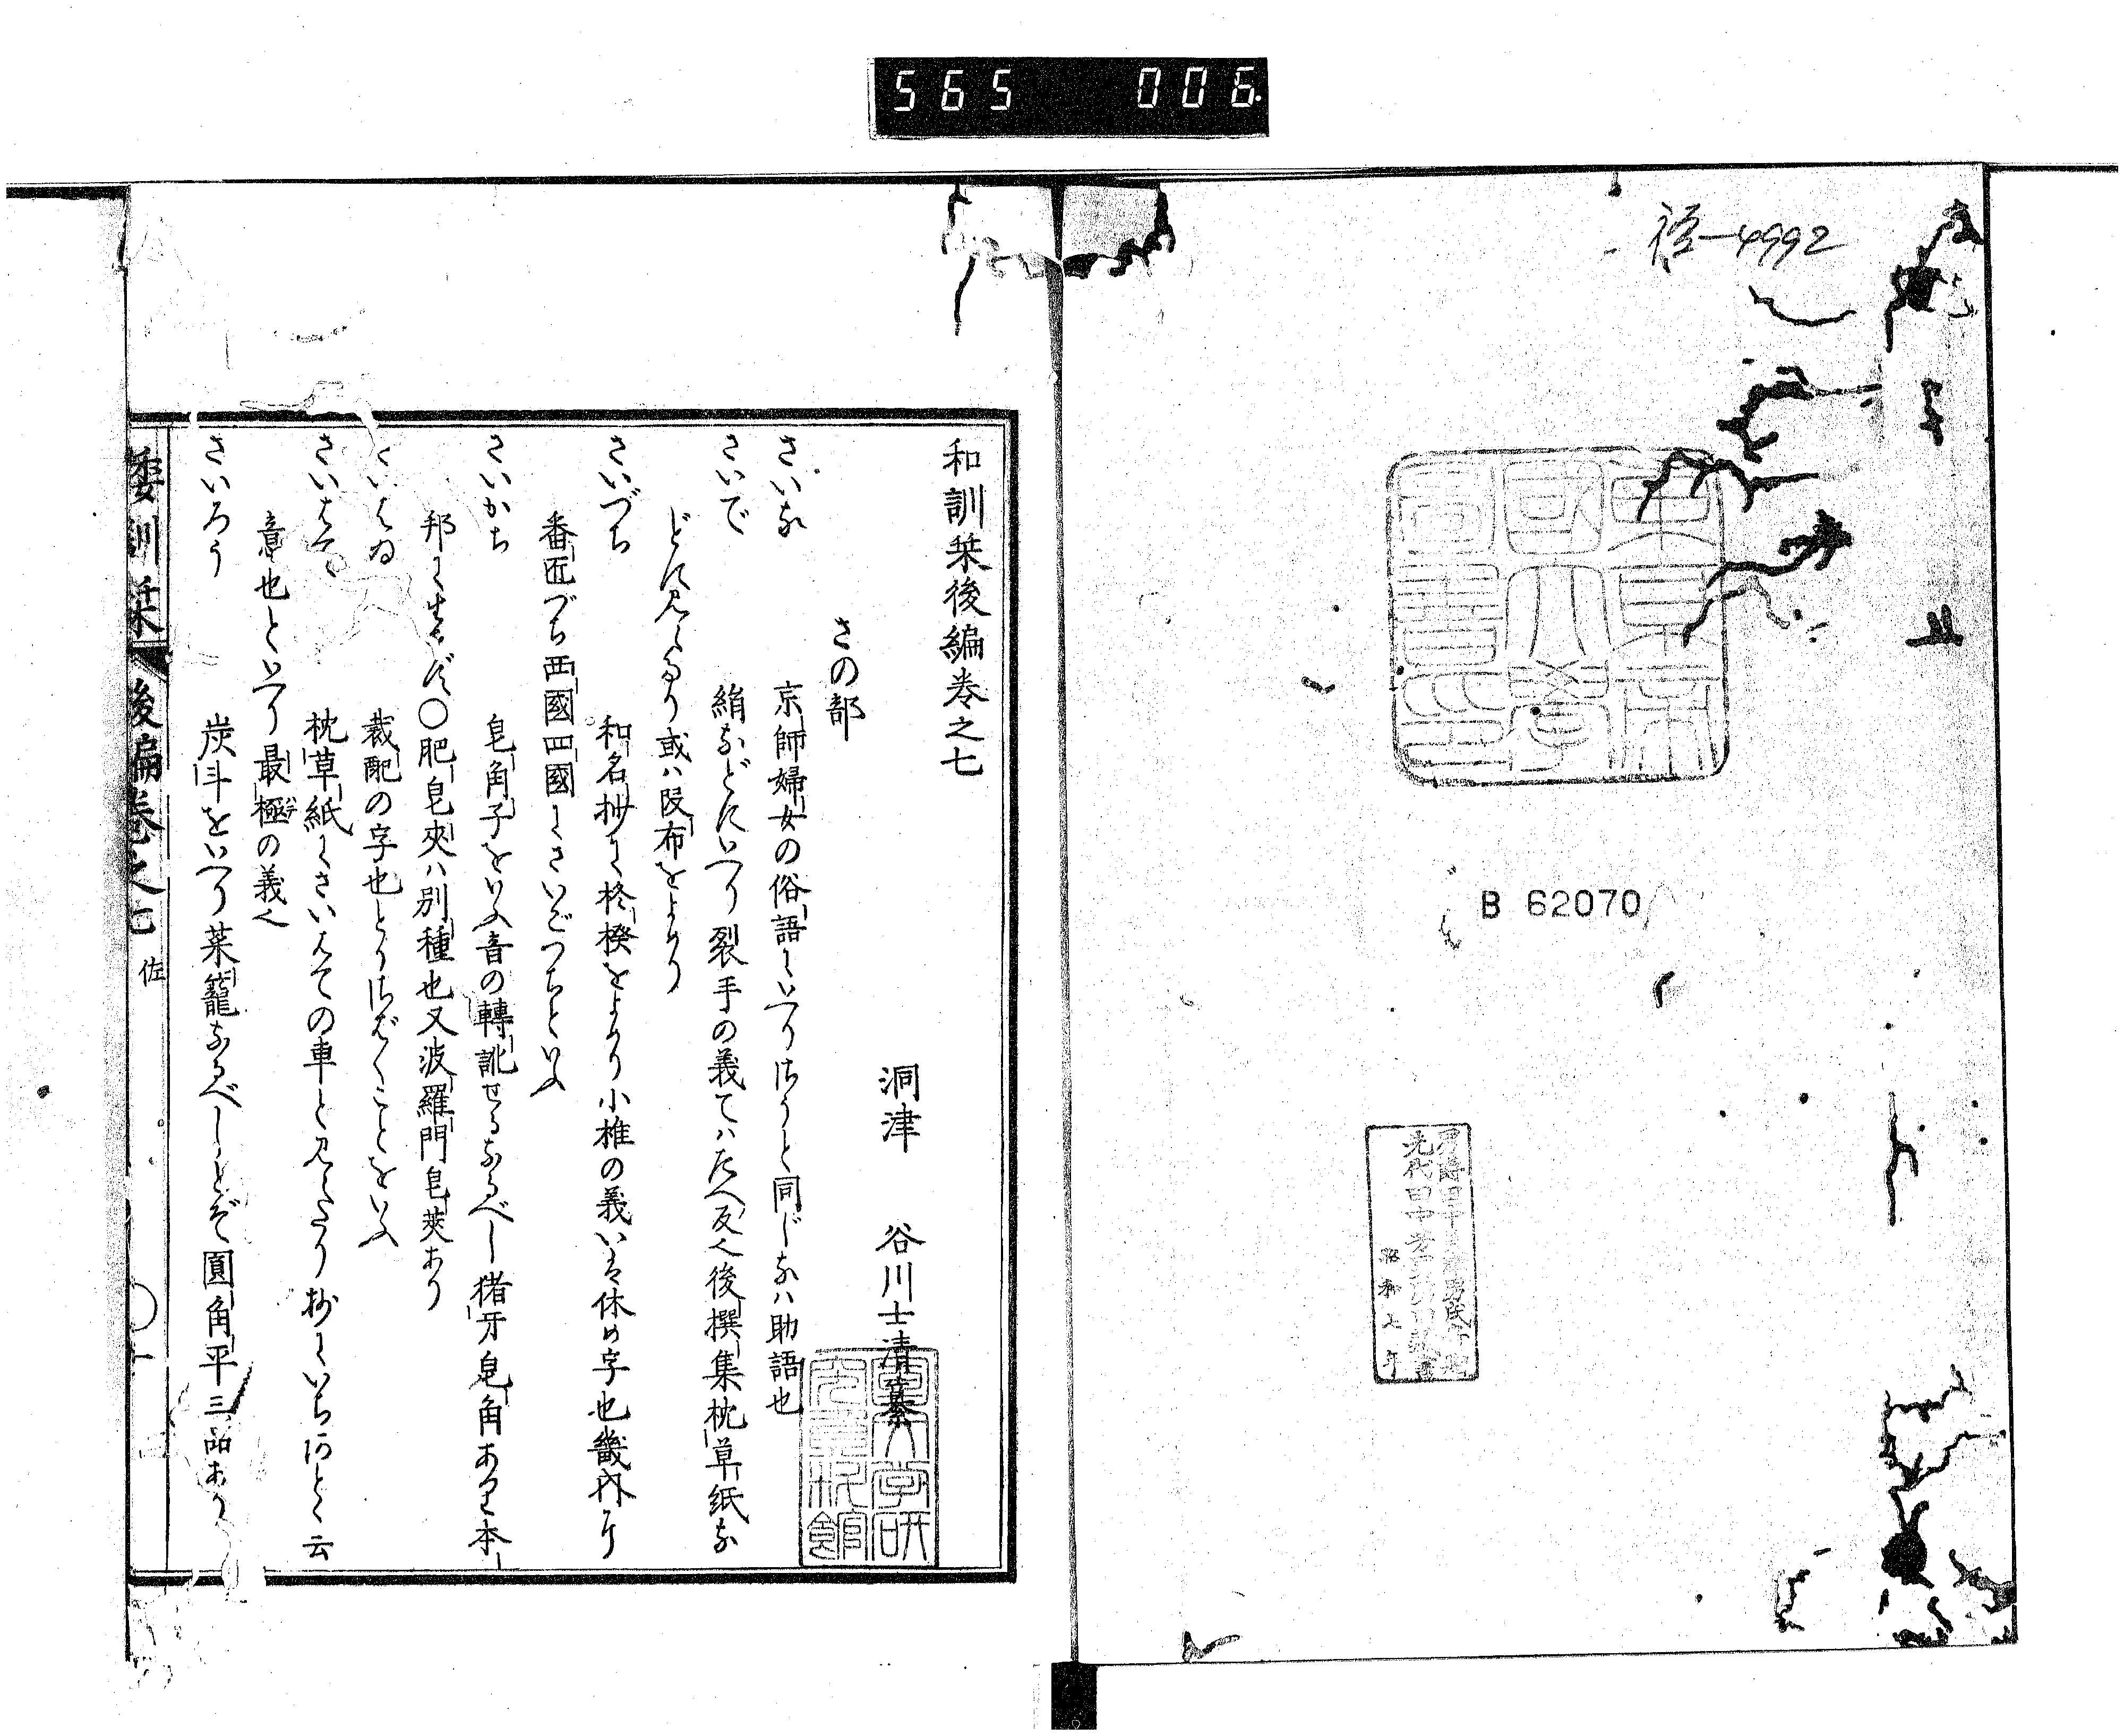 565 006
禔-4992
B 62070
和訓栞後編巻之七
洞津 谷川士清纂
さの部
さいな 京師婦女の俗語にいへりさうと同じなハ助語也
さいで 絹などにいへり裂手の義てハたへ反也後撰集枕草紙な
どに見えたり或ハ段布をよめり
さいづち 和名抄に柊楑をよめり小椎の義いは休め字也畿内に
番匠づち西國四國にさいごつちといふ
さいかち 皂角子をいふ音の轉訛せるなるべし猪牙皂角あり本
邦に生ぜず〇肥皂夾ハ別種也又波羅門皂莢あり
さいはゐ 裁配の字也とりさばくことをいふ
さいはて 枕草紙にさいはての車と見えたり抄にいちはてと云
意也といへり最極の義也
さいろう 炭斗をいへり菜籠なるべしとぞ圓角平三品あり
倭訓栞 後編巻之七 佐